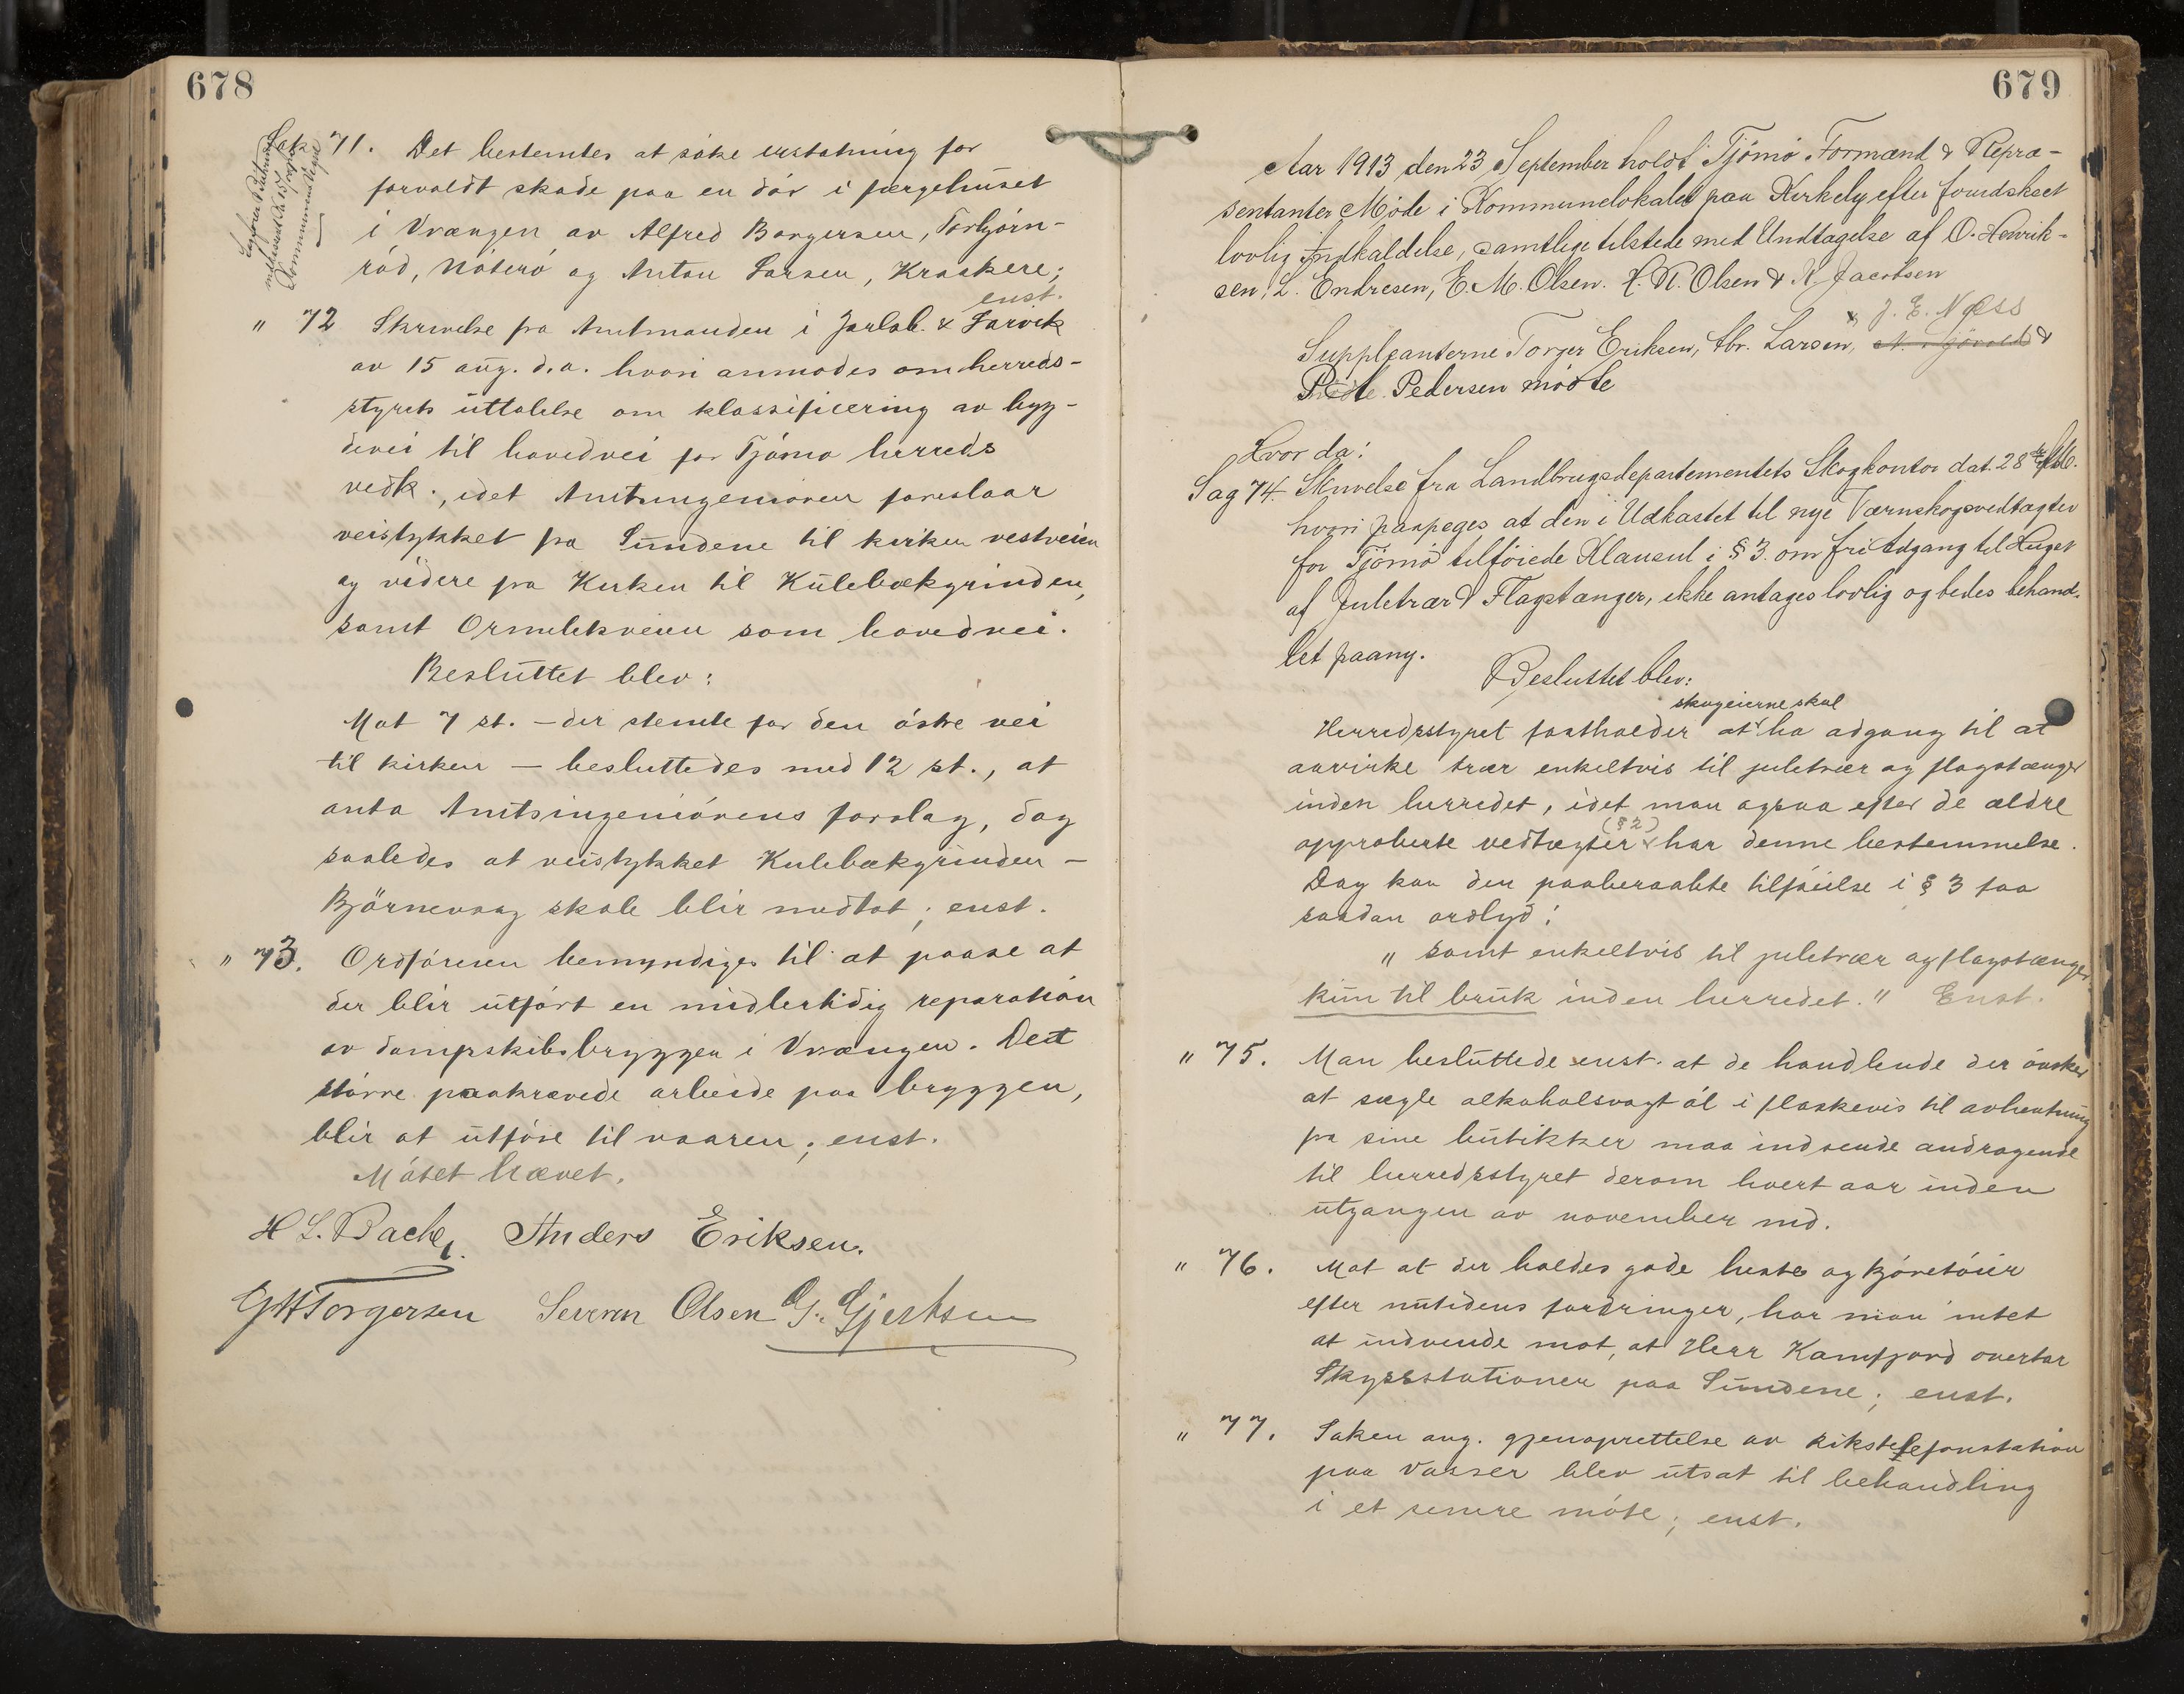 678
Sak 71. Det bestemtes at söke erstatning for
forvoldt skade paa en dör i færgehuset
i Vrængen av Alfred Borgersen, Torbjörn-
röd, Nöterö og Anton Larsen, Kraakere;
enst.
" 72 Skrivelse fra Amtmanden i Jarlsb. & Larvik
av 15 aug. d.a. hvori anmodes om herreds-
styrets uttalelse om klassificering av byg-
devei til hovedvei for Tjömö herreds
vedk., idet Amtsingeniören foreslaar
veistykket fra Sundene til kirken vestveien
og videre fra Kirken til Kulebækgrinden,
samt Ormeletveien som hovedvei.
Besluttet blev:
Mot 7 st. – der stemte for den östre vei
til kirken – besluttedes med 12 st., at
anta Amtsingeniörens forslag, dog
saaledes at veistykket Kulebækgrinden –
Björnevaag skole blir medtat; enst.
" 73. Ordföreren bemyndiges til at paase at
der blir utfört en midlertidig reparation
av dampskibsbryggen i Vrængen. Det
större paakrævede arbeide paa bryggen,
blir at utföre til vaaren; enst.
Mötet hævet.
H L. Bache Anders Eriksen.
G H Torgersen Severin Olsen G. Gjertsen
679
Aar 1913 den 23 September holdt Tjömö Formænd & Repræ-
sentanter Möde i Kommunelokalet paa Kirkely efter forudskeet
lovlig Indkaldelse, samtlige tilstede med Undtagelse af O. Henrik-
sen, L. Endresen, E. M. Olsen. H. R. Olsen & K. Jacobsen
J. E. Næss
Suppleanterne Torger Eriksen, Abr. Larsen, &
Pedersen mödte
Hvor da:
Sag 74. Skrivelse fra Landbrugsdepartementets Skogkontor dat. 28
hvori paapeges at den i Udkastet til nye Værnskogvedtægter
for Tjömö tilföiede Klausul i § 3. om fri Adgang til Hugst
af Juletrær & Flagstænger, ikke antages lovlig og bedes behand-
let paany.
Besluttet blev:
skogeierne skal
Herredsstyret fastholder at ha adgang til at
avvirke trær enkeltvis til juletrær og flagstænger
inden herredet, idet man ogsaa efter de ældre
(§ 2)
approberte vedtægter har denne bestemmelse.
Dog kan den paaberaabte tilföielse i § 3 faa
saadan ordlyd:
" samt enkeltvis til juletrær og flagstænger
kun til bruk inden herredet." Enst.
" 75. Man besluttede enst. at de handlende der önsker
at sægle alkoholsvagt öl i flaskevis til avhentning
fra sine butikker maa indsende andragende
til herredsstyret derom hvert aar inden
utgangen av november md.
" 76. Mot at der holdes gode heste og kjöretöier
efter nutidens fordringer, har man intet
at indvende mot, at Herr Kamfjord overtar
Skysstationen paa Sundene; enst.
" 77. Saken ang. gjenoprettelse av rikstelefonstation
paa Vasser blev utsat til behandling
i et senere möte; enst.